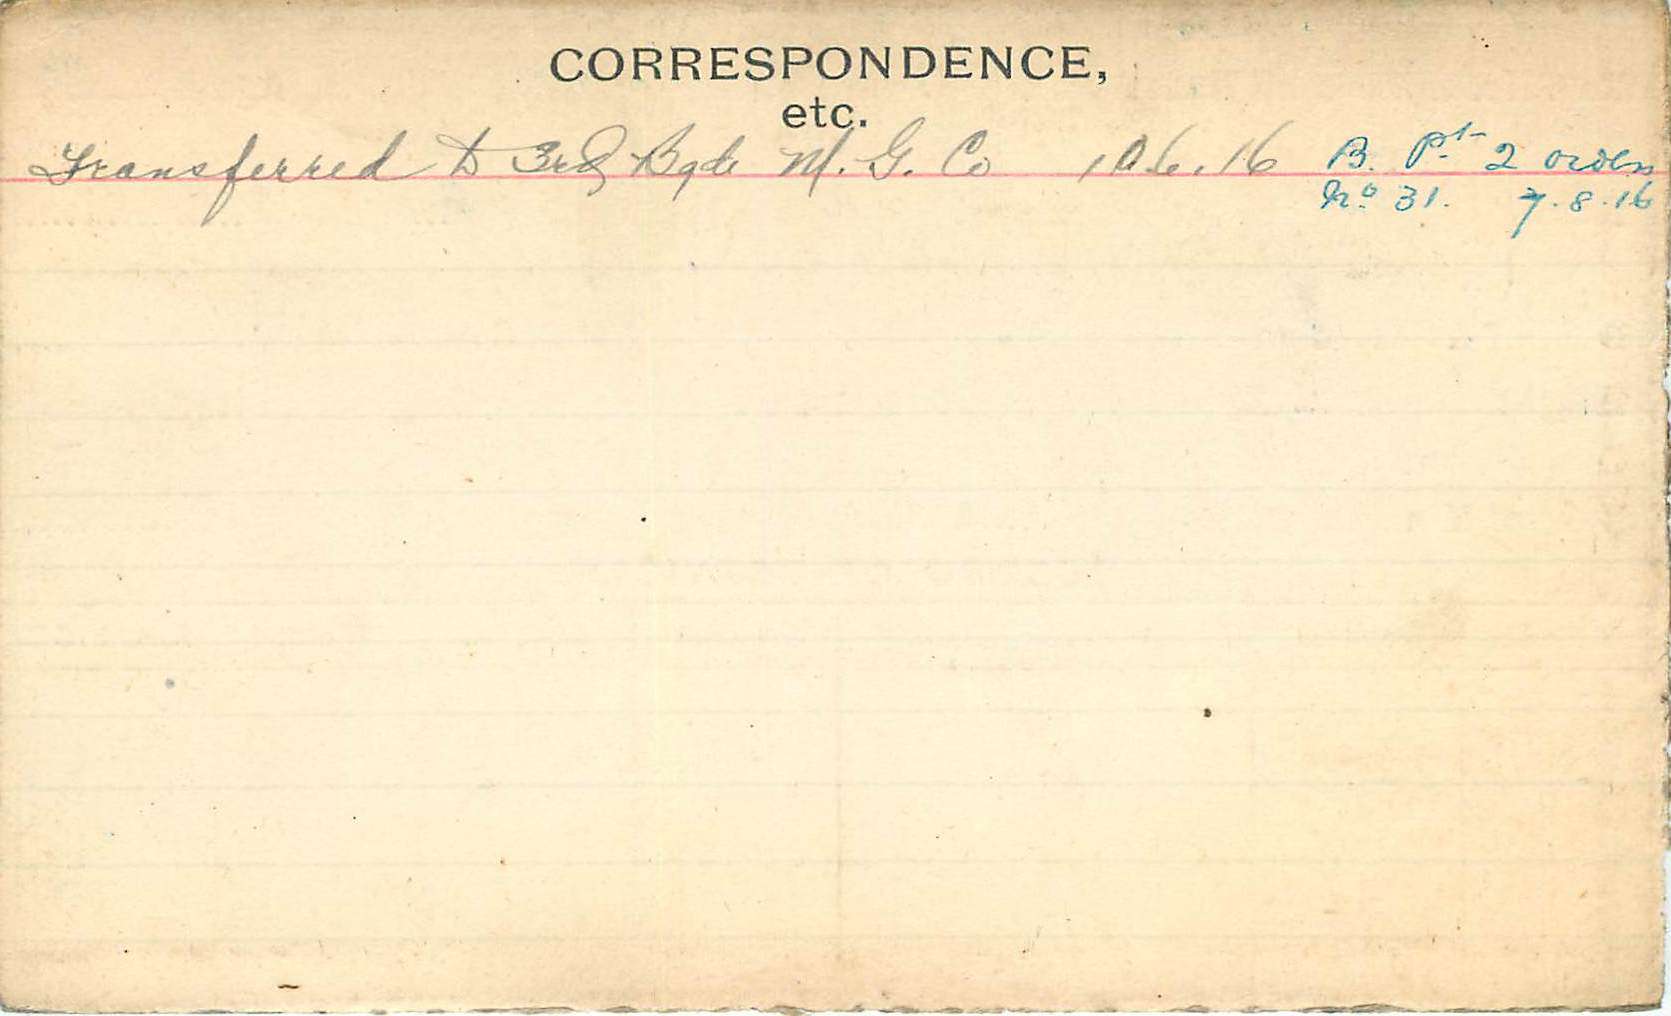 CORRESPONDENCE,
etc.
Transferred to 3rd Bgde M. G. Co 10.6.16 B. Pt 2 orders
No 31. 7.8.16